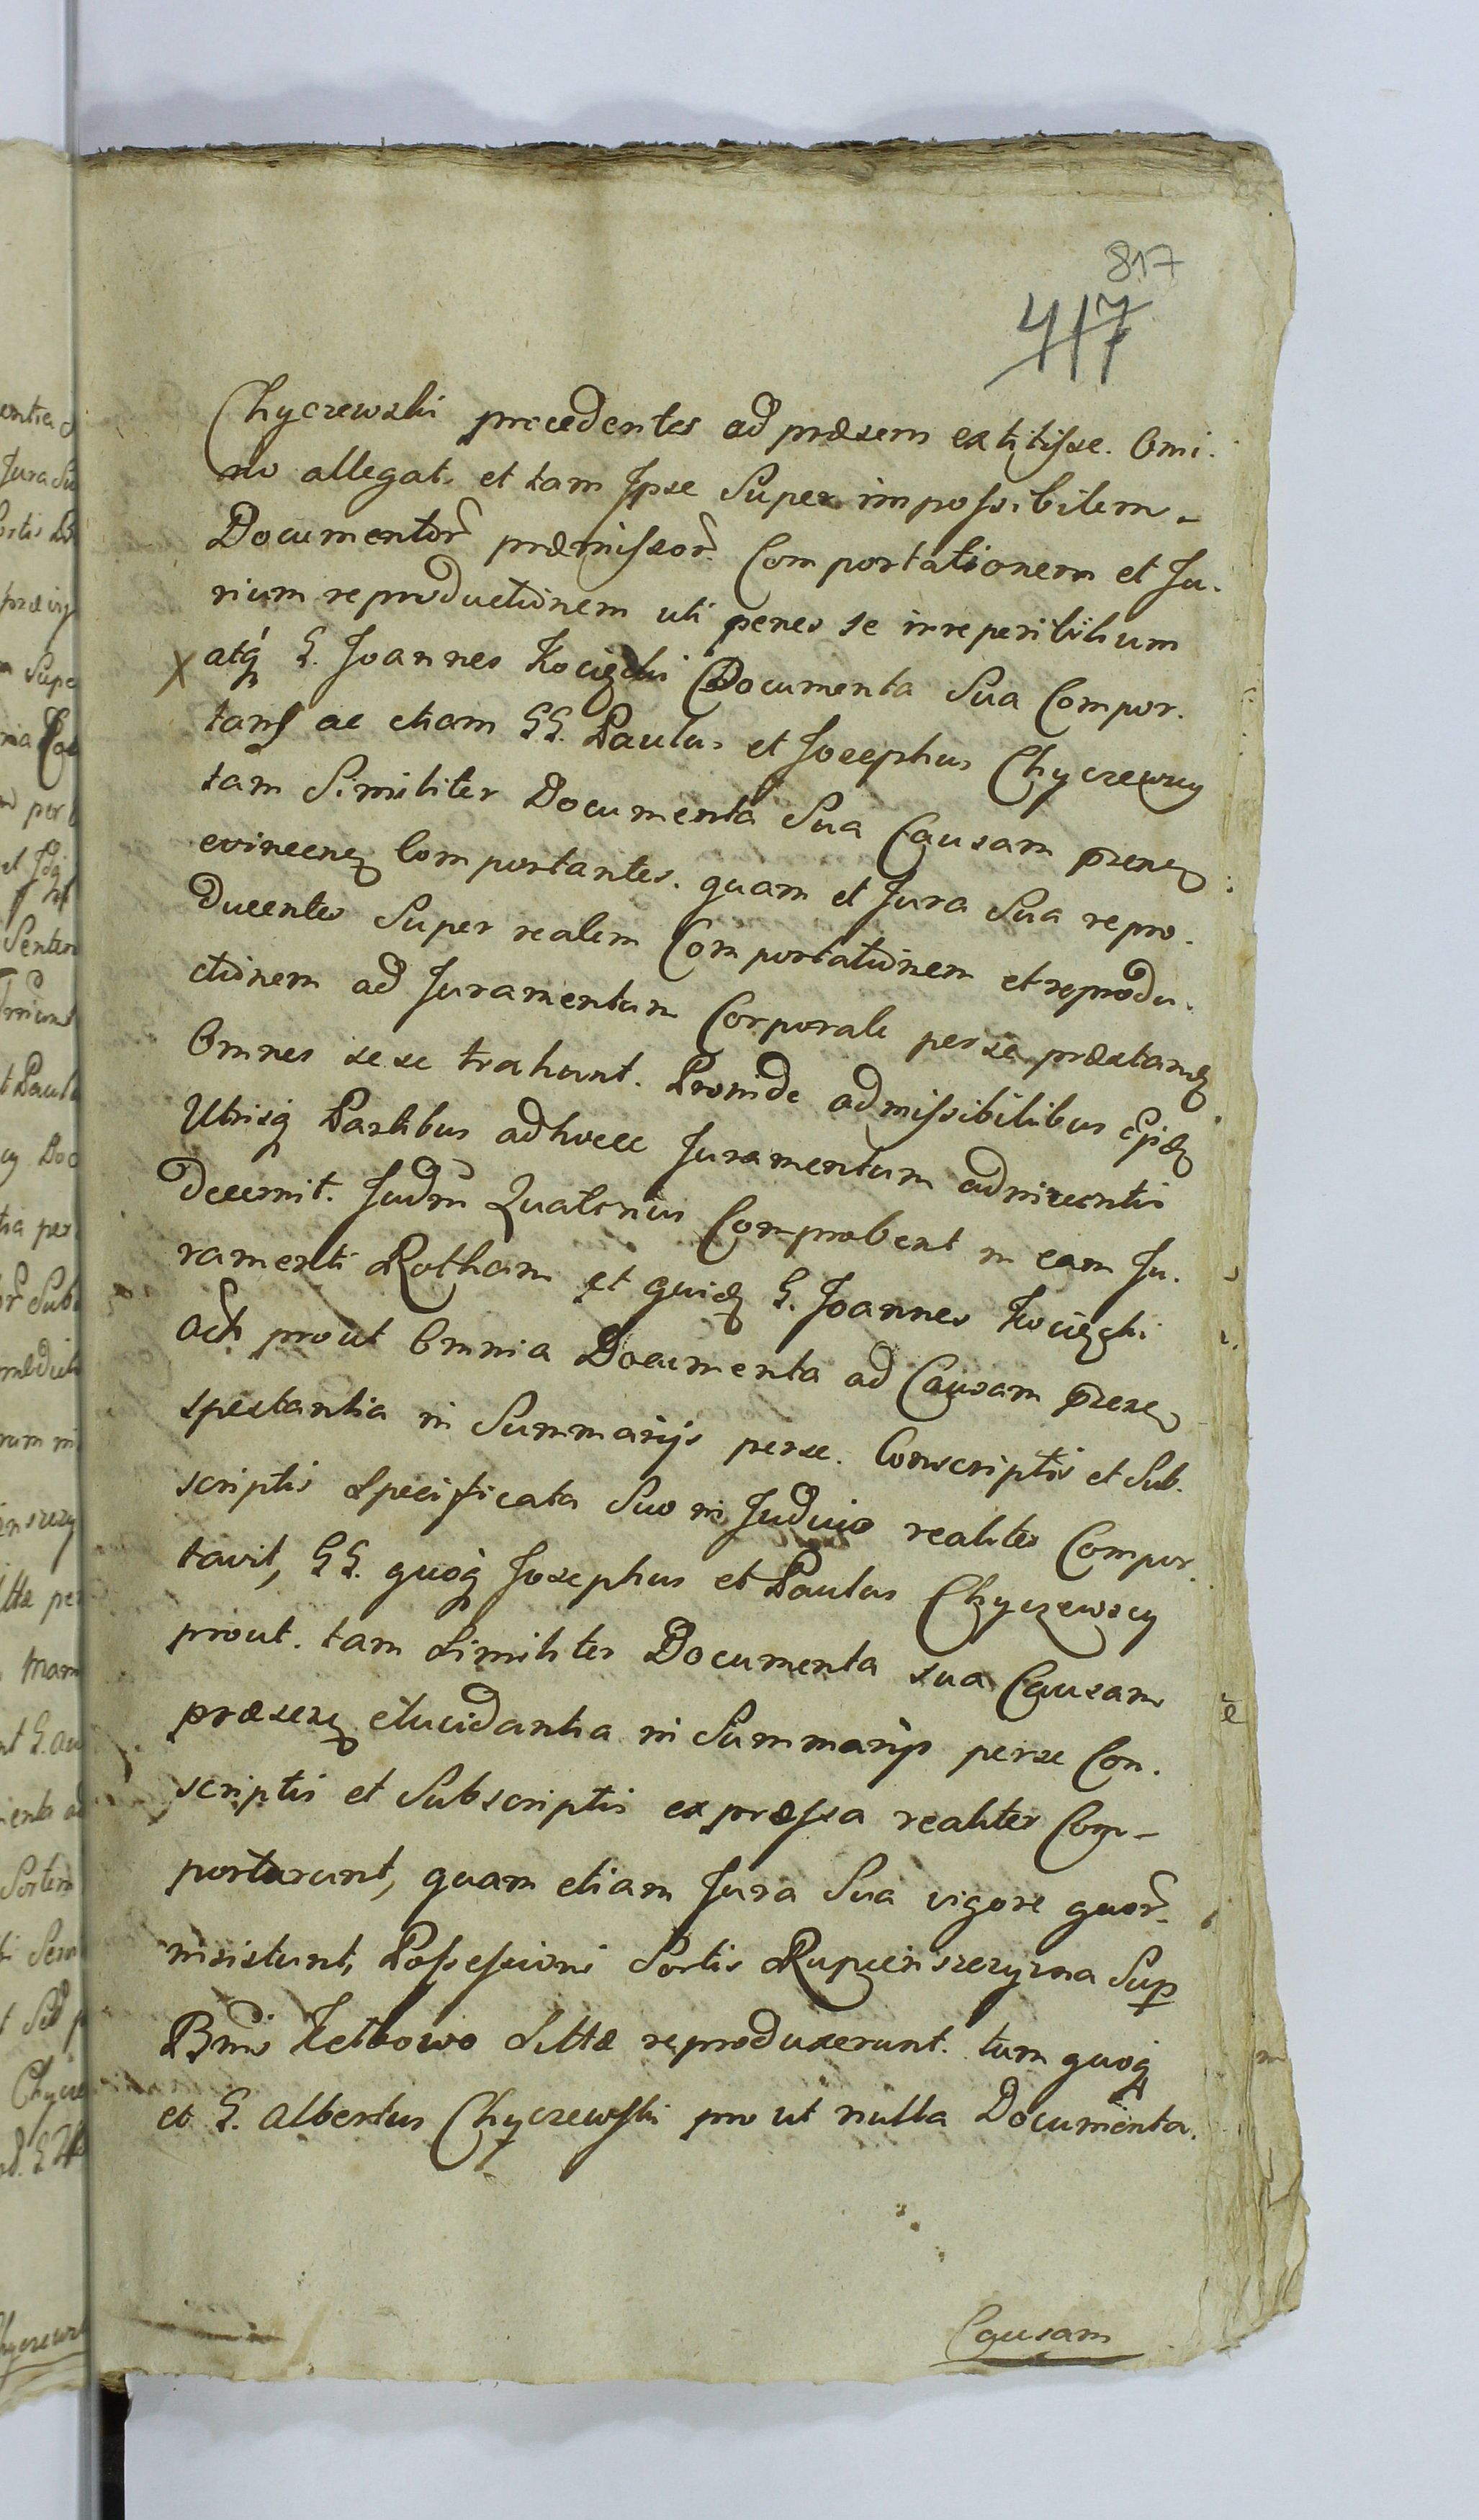 817
417
Chyczewski precedentes ad præsens extitisse. Omi.
no allegat. et tam Ipse Super impossibilem
Documentor. præmissor. Comportationem et Ju.
rium reproductionem uti penes se irreperibilium
X atq. G. Joannes Kocięcki Documenta Sua Compor.
tans ac etiam GG. Paulus et Josephus Chyczewscy
tam Similiter Documenta Sua Causam præsen
evincen Comportantes. quam et Jura Sua repro.
ducentes Super realem Comportationem et reprodu.
ctionem ad Juramentum Corporale per se præstan
Omnes se se trahunt. Proinde admissibilibus
Utrisq Partibus adhocce Juramentum
decernit. Judm Quatenus Comprobent in eam Ju.
ramenti Rotham et quid G. Joannes Kocięcki
Act prout Omnia Documenta ad Causam præsen
spectantia in Summarijs per se Conscriptis et Sub.
scriptis Specificata Suo in Judicio realiter Compor.
tavit, GG. quoq Josephus et Paulus Chyczewscy
prout. tam Similiter Documenta sua Causam
præsen elucidantia in Summarijs per se Con.
scriptis et Subscriptis expressa realiter Com-
portarunt, quam etiam Jura Sua vigore quor.
insistunt, Possessioni Sortis Rupieńszczyzna Sup
Bnis Kethowo Sittæ reproduxerunt. tum quoq
et G. Albertus Chyczewski pro ut nulla Documenta.
Causam